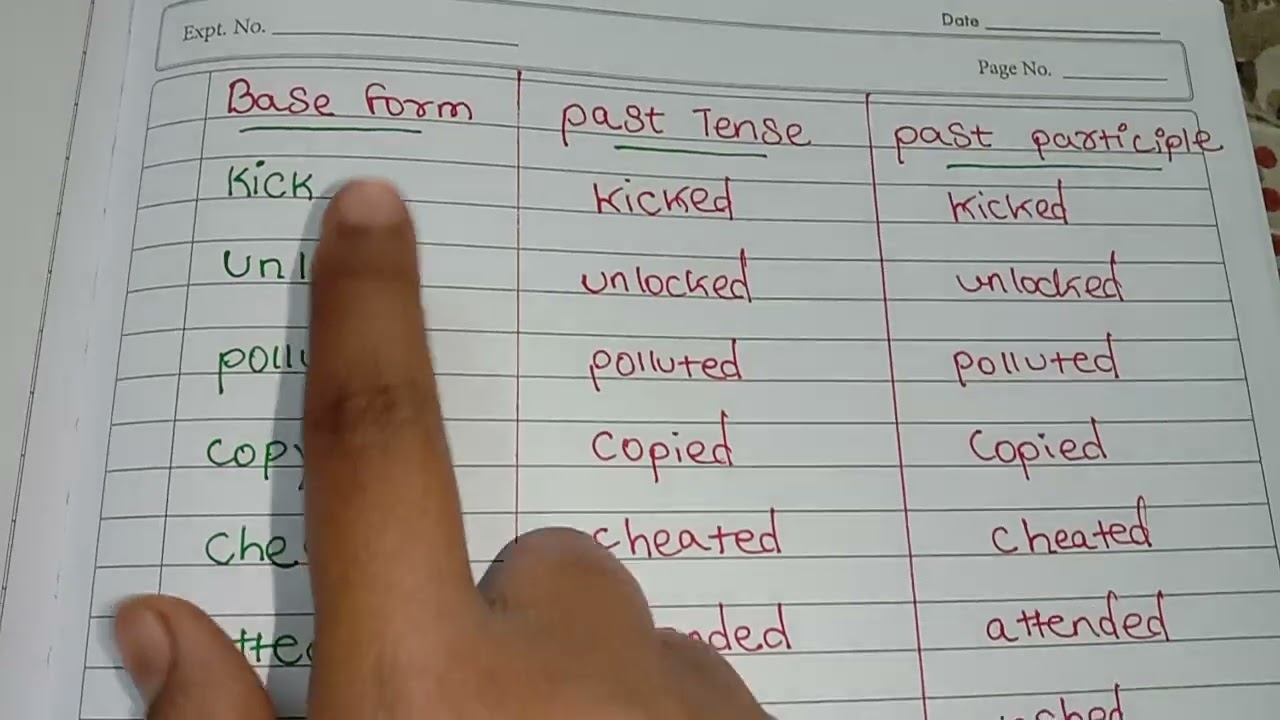 Expt. No.
Date
Page No.
Base form past Tense past participle
Kick kicked kicked
unlocked unlocked
polluted polluted
copy copied copied
cheated cheated
attended